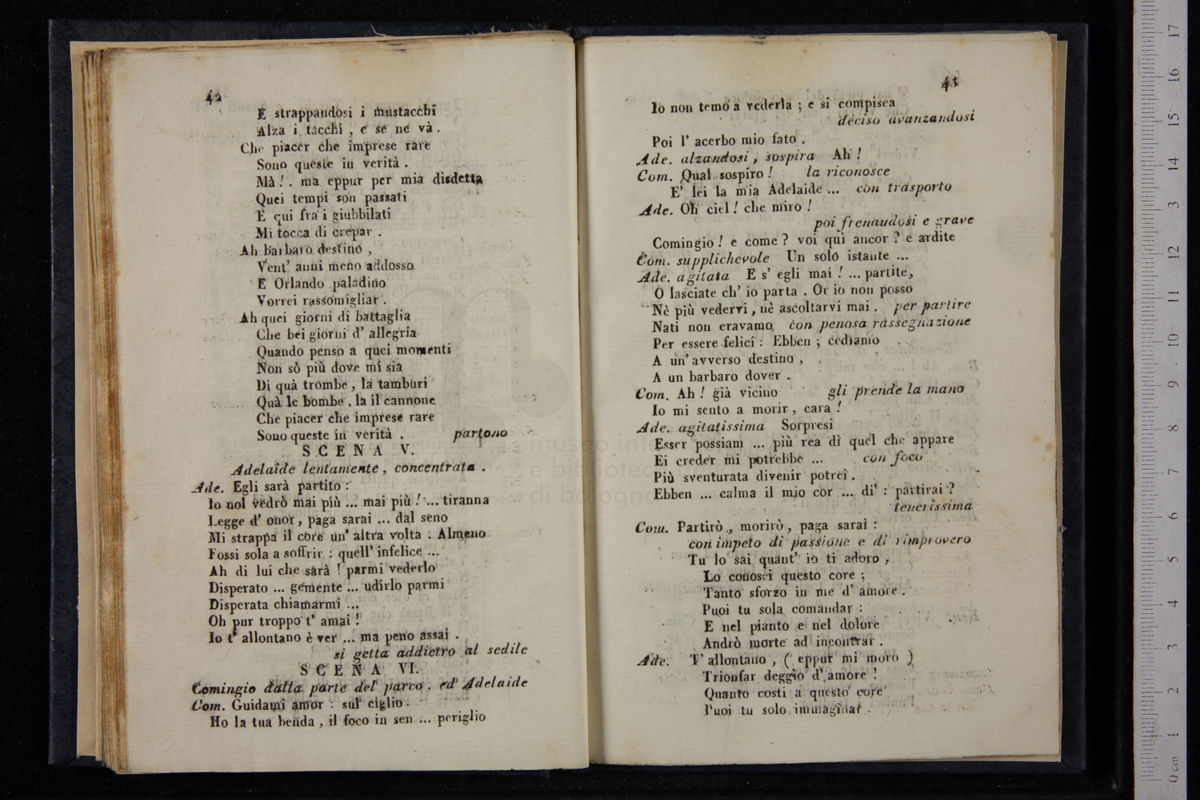 42
E strappandosi i mustacchi
Alza i tacchi , e se ne và .
Che piacer che imprese rare
Sono queste in verità .
Mà ! . ma eppur per mia disdetta
Quei tempi son passati
E qui fra i giubbilati
Mi tocca di crepar .
Ah barbaro destino ,
Vent' anni meno addosso
E Orlando paladino
Vorrei rassomigliar .
Ah quei giorni di battaglia
Che bei giorni d' allegria
Quando penso a quei momenti
Non sò più dove mi sia
Di quà trombe , la tamburi
Quà le bombe , la il cannone
Che piacer che imprese rare
Sono queste in verità . partono
SCENA V.
Adelaide lentamente , concentrata .
Ade. Egli sarà partito :
Io nol vedrò mai più ... mai più ! ... tiranna
Legge d' onor , paga sarai ... dal seno
Mi strappa il core un' altra volta : Almeno
Fossi sola a soffrir : quell' infelice ...
Ah di lui che sarà ! parmi vederlo
Disperato ... gemente ... udirlo parmi
Disperata chiamarmi ...
Oh pur troppo t' amai !
Io t' allontano è ver ... ma peno assai .
si getta addietro al sedile
SCENA VI.
Comingio dalla parte del parco , ed Adelaide
Com. Guidami amor : sul ciglio
Ho la tua benda , il foco in sen ... periglio
43
Io non temo a vederla ; e si compisca
deciso avanzandosi
Poi l' acerbo mio fato .
Ade. alzandosi , sospira Ah !
Com. Qual sospiro ! la riconosce
E' lei la mia Adelaide ... con trasporto
Ade. Oh ciel ! che miro !
poi frenandosi e grave
Comingio ! e come ? voi quì ancor ? e ardite
Com. supplichevole Un solo istante ...
Ade. agitata E s' egli mai ! ... partite,
O lasciate ch' io parta . Or io non posso
Nè più vedervi , nè ascoltarvi mai . per partire
Nati non eravamo, con penosa rassegnazione
Per essere felici : Ebben ; cediamo
A un' avverso destino ,
A un barbaro dover .
Com. Ah ! già vicino gli prende la mano
Io mi sento a morir , cara !
Ade. agitatissima Sorpresi
Esser possiam ... più rea di quel che appare
Ei creder mi potrebbe ... con foco
Più sventurata divenir potrei .
Ebben ... calma il mio cor ... di' : partirai ?
tenerissima
Com. Partirò , morirò , paga sarai :
con impeto di passione e di rimprovero
Tu lo sai quant' io ti adoro ,
Lo conosci questo core ;
Tanto sforzo in me d' amore .
Puoi tu sola comandar :
E nel pianto e nel dolore
Andrò morte ad incontrar .
Ade. T' allontano , ( eppur mi moro )
Trionfar deggio d' amore !
Quanto costi a questo core
Puoi tu solo immaginar .